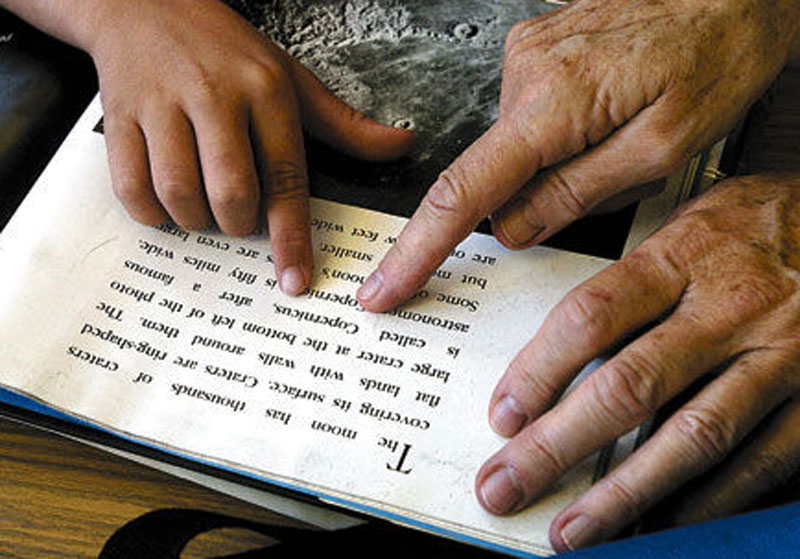 The moon has thousands of craters
covering its surface. Craters are ring-shaped
flat lands with walls around them. The
large crater at the bottom left of the photo
is called Copernicus, after a famous
is fifty miles wide.
Some moon's are even
but smaller
are feet wide